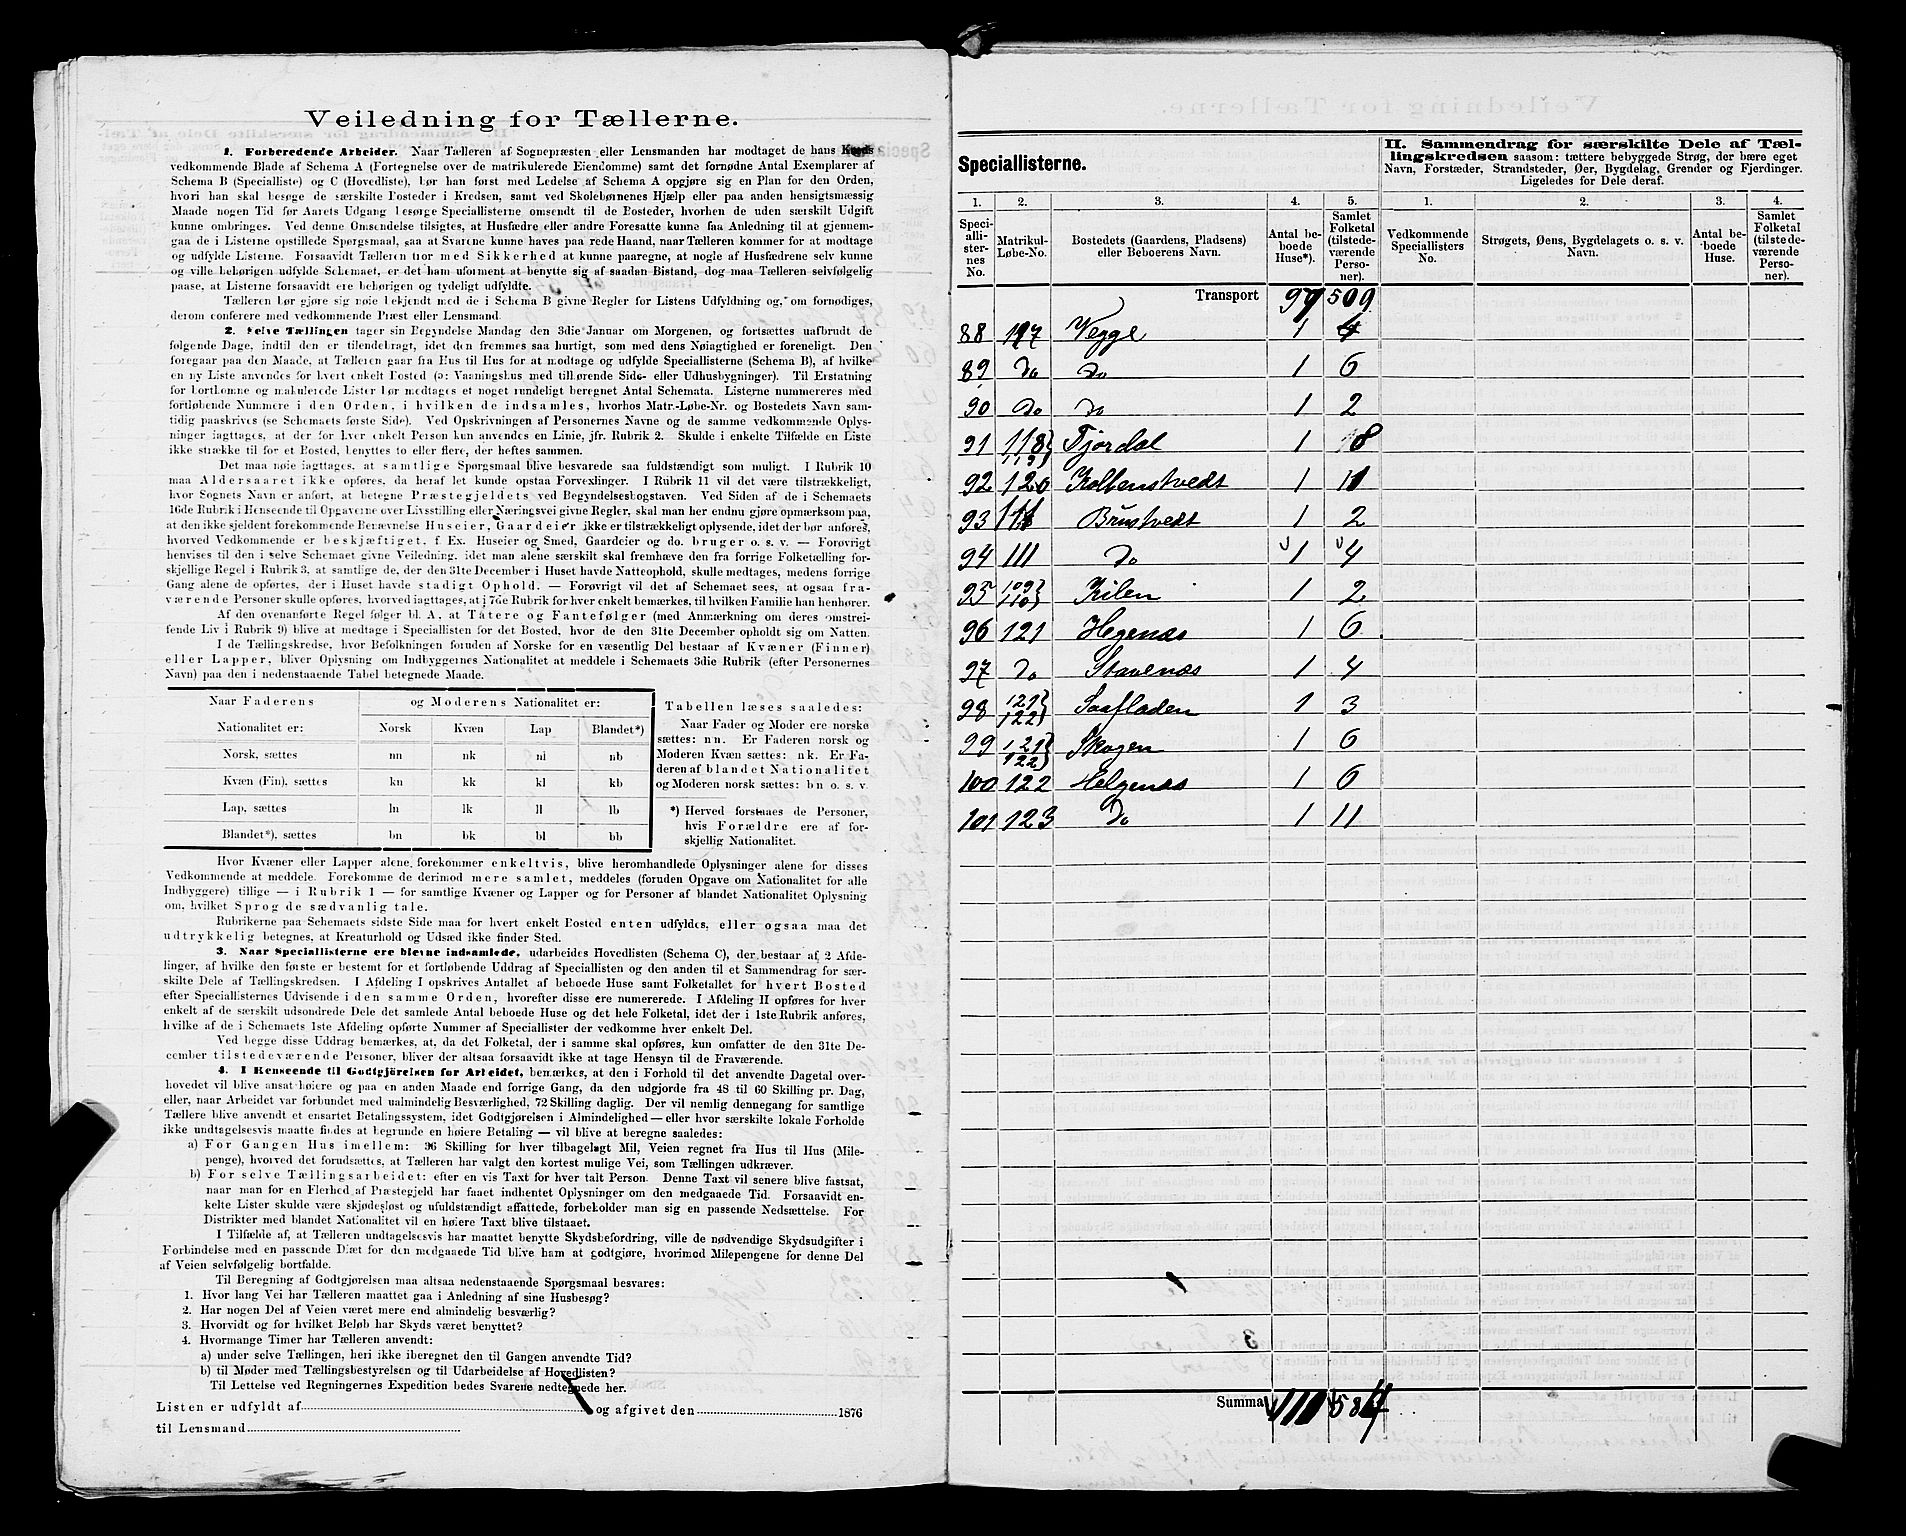 Veiledning for Tællerne.
1. Forberedende Arbeider. Naar Tælleren af Sognepræsten eller Lensmanden har modtaget de hans Kreds
vedkommende Blade af Schema A (Fortegnelse over de matrikulerede Eiendomme) samt det fornødne Antal Exemplarer af
Schema B (Specialliste) og C (Hovedliste), bør han først med Ledelse af Schema A opgjøre sig en Plan for den Orden,
hvori han skal besøge de særskilte Bosteder i Kredsen, samt ved Skolebørnenes Hjælp eller paa anden hensigtsmæssig
Maade nogen Tid før Aarets Udgang besørge Speciallisterne omsendt til de Bosteder, hvorhen de uden særskilt Udgift
kunne ombringes. Ved denne Omsendelse tilsigtes, at Husfædre eller andre Foresatte kunne faa Anledning til at gjennem-
gaa de i Listerne opstillede Spørgsmaal, saa at Svarene kunne haves paa rede Haand, naar Tælleren kommer for at modtage
og udfylde Listerne. Forsaavidt Tælleren tror med Sikkerhed at kunne paaregne, at nogle af Husfædrene selv kunne
og ville behørigen udfylde Schemaet, er det ham uforment at benytte sig af saadan Bistand, dog maa Tælleren selvfølgelig
paase, at Listerne forsaavidt ere behørigen og tydeligt udfyldte.
Tælleren bør gjøre sig nøie bekjendt med de i Schema B givne Regler for Listens Udfyldning og, om fornødiges,
derom conferere med vedkommende Præst eller Lensmand.
2. Selve Tællingen tager sin Begyndelse Mandag den 3die Januar om Morgenen, og fortsættes uafbrudt de
følgende Dage, indtil den er tilendebragt, idet den fremmes saa hurtigt, som med dens Nøiagtighed er foreneligt. Den
foregaar paa den Maade, at Tælleren gaar fra Hus til Hus for at modtage og udfylde Speciallisterne (Schema B), af hvilke
en ny Liste anvendes for hvert enkelt Bosted (ɔ: Vaaningshus med tilhørende Side- eller Udhusbygninger). Til Erstatning
for bortkomne og makulerede Lister bør medtages et noget rundeligt beregnet Antal Schemata. Listerne nummereres med
fortløbende Nummere i den Orden, i hvilken de indsamles, hvorhos Matr.-Løbe-Nr. og Bostedets Navn sam-
tidig paaskrives (se Schemaets første Side). Ved Opskrivningen af Personernes Navne og de samme vedkommende Oplys-
ninger iagttages, at der for hver enkelt Person kun anvendes en Linie, jfr. Rubrik 2. Skulde i enkelte Tilfælde en Liste
ikke strække til for et Bosted, benyttes to eller flere, der heftes sammen.
Det maa nøie iagttages, at samtlige Spørgsmaal blive besvarede saa fuldstændigt som muligt. I Rubrik 10
maa Aldersaaret ikke opføres, da heraf let kunde opstaa Forvexlinger. I Rubrik 11 vil det være tilstrækkeligt,
hvor Sognets Navn er anført, at betegne Præstegjeldets ved Begyndelsesbogstaven. Ved Siden af de i Schemaets
16de Rubrik i Henseende til Opgaverne over Livsstilling eller Næringsvei givne Regler, skal man her endnu gjøre opmærksom paa,
at den ikke sjeldent forekommende Benævnelse Huseier, Gaardeier ikke er tilstrækkeligt oplysende, idet der bør anføres,
hvorved Vedkommende er beskjæftiget, f. Ex. Huseier og Smed, Gaardeier og do. bruger o. s. v. — Forøvrigt
henvises til den i selve Schemaet givne Veiledning, idet man alene særskilt skal fremhæve den fra forrige Folketælling for-
skjellige Regel i Rubrik 3, at samtlige de, der den 31te December i Huset havde Natteophold, skulle medtages, medens forrige
Gang alene de opførtes, der i Huset havde stadigt Ophold. — Forøvrigt vil det af Schemaet sees, at ogsaa fra-
værende Personer skulle opføres, hvorved iagttages, at i 7de Rubrik for hver enkelt bemærkes, til hvilken Familie han henhører.
Af den ovenanførte Regel følger bl. A. at Tatere og Fantefølger (med Anmærkning om deres omstrei-
fende Liv i Rubrik 9) blive at medtage i Speciallisten for det Bosted, hvor de den 31te December opholdt sig om Natten.
I de Tællingskredse, hvor Befolkningen foruden af Norske for en væsentlig Del bestaar af Kvæner (Finner)
eller Lapper, bliver Oplysning om Indbyggernes Nationalitet at meddele i Schemaets 3die Rubrik (efter Personernes
Navn) paa den i nedenstaaende Tabel betegnede Maade.
Naar Faderens Nationalitet er: og Moderens Nationalitet er:
Norsk Kvæn Lap Blandet*)
Norsk, sættes nn nk nl nb
Kvæn (Fin). sættes kn kk kl kb
Lap, sættes ln lk ll lb
Blandet*), sættes bn bk bl bb
Tabellen læses saaledes:
Naar Fader og Moder ere norske
sættes: nn. Er Faderen norsk og
Moderen Kvæn sættes: nk. Er Fa-
deren af blandet Nationalitet
og Moderen norsk sættes: bn o. s. v.
*) Herved forstaaes de Personer,
hvis Forældre ere af for-
skjellig Nationalitet.
Hvor Kvæner eller Lapper alene forekommer enkeltvis, blive heromhandlede Oplysninger alene for disses
Vedkommende at meddele. Forekomme de derimod mere samlet, meddeles (foruden Opgave om Nationalitet for alle
Indbyggere) tillige — i Rubrik 1 — for samtlige Kvæner og Lapper og for Personer af blandet Nationalitet Oplysning
om, hvilket Sprog de sædvanlig tale.
Rubrikerne paa Schemaets sidste Side maa for hvert enkelt Bosted enten udfyldes, eller ogsaa maa det
udtrykkelig betegnes, at Kreaturhold og Udsæd ikke finder Sted.
3. Naar Speciallisterne ere blevne indsamlede, udarbeides Hovedlisten (Schema C), der bestaar af 2 Afde-
linger, af hvilke den første er bestemt for et fortløbende Uddrag af Speciallisten og den anden til et Sammendrag for sær-
skilte Dele af Tællingskredsen. I Afdeling I opskrives Antallet af beboede Huse samt Folketallet for hvert Bosted
efter Speciallisternes Udvisende i den samme Orden, hvorefter disse ere numererede. I Afdeling II opføres for hver
enkelt af de særskilt udsondrede Dele det samlede Antal beboede Huse og det hele Folketal, idet der i 1ste Rubrik anføres,
hvilke af de i Schemaets 1ste Afdeling opførte Nummer af Speciallister der vedkomme hver enkelt Del.
Ved begge disse Uddrag bemærkes, at, da det Folketal, der i samme skal opføres, kun omfatter de den 31te De-
cember tilstedeværende Personer, bliver der altsaa forsaavidt ikke at tage Hensyn til de Fraværende.
4. I Henseende til Godtgjörelsen for Arbeidet, bemærkes, at den i Forhold til det anvendte Dagetal over-
hovedet vil blive ansat høiere og paa en anden Maade end forrige Gang, da den udgjorde fra 48 til 60 Skilling pr. Dag,
eller, naar Arbeidet var forbundet med ualmindelig Besværlighed, 72 Skilling daglig. Der vil nemlig dennegang for samtlige
Tællere blive anvendt et ensartet Betalingssystem, idet Godtgjørelsen i Almindelighed — eller hvor særskilte lokale Forholde
ikke undtagelsesvis maatte findes at begrunde en høiere Betaling — vil blive at beregne saaledes:
a) For Gangen Hus imellem: 36 Skilling for hver tilbagelagt Mil, Veien regnet fra Hus til Hus (Mile-
penge), hvorved det forudsættes, at Tælleren har valgt den kortest mulige Vei, som Tællingen udkræver.
b) For selve Tællingsarbeidet: efter en vis Taxt for hver talt Person. Denne Taxt vil senere blive fastsat,
naar man for en Flerhed af Præstegjeld har faaet indhentet Oplysninger om den medgaaede Tid. Forsaavidt en-
kelte Lister skulde være skjødesløst og ufuldstændigt affattede, forbeholder man sig en passende Nedsættelse. For
Distrikter med blandet Nationalitet vil en høiere Taxt blive tilstaaet.
I Tilfælde af, at Tælleren undtagelsesvis har maattet benytte Skydsbefordring, ville de nødvendige Skydsudgifter i
Forbindelse med en passende Diæt for den medgaaede Tid blive ham at godtgjøre, hvorimod Milepengene for denne Del
af Veien selvfølgelig bortfalde.
Til Beregning af Godtgjørelsen maa altsaa nedenstaaende Spørgsmaal besvares:
1. Hvor lang Vei har Tælleren maattet gaa i Anledning af sine Husbesøg?
2. Har nogen Del af Veien været mere end almindelig besværlig?
3. Hvorvidt og for hvilket Beløb har Skyds været benyttet?
4. Hvormange Timer har Tælleren anvendt:
a) under selve Tællingen, heri ikke iberegnet den til Gangen anvendte Tid?
b) til Møder med Tællingsbestyrelsen og til Udarbeidelse af Hovedlisten?
Til Lettelse ved Regningernes Expedition bedes Svarene nedtegnede her.
Listen er udfyldt af og afgivet den 1876
til Lensmand
Speciallisterne.
1. 2. 3. 4. 5.
Speci-allister-nes No. Matrikul-Løbe-No. Bostedets (Gaardens, Pladsens) eller Beboerens Navn. Antal be-boede Huse*). Samlet Folketal (tilstede-værende Perso-ner).
Transport 97 509
88 117 Vegge 1 4
89 Do Do 1 6
90 Do Do 1 2
91 118 119 Fjordal 1 8
92 120 Kolbenstvedt 1 11
93 111 Brustvedt 1 2
94 111 Do 1 4
95 109 110 Kilen 1 2
96 121 Hegenæs 1 6
97 Do Stavenæs 1 4
98 121 122 Saafladen 1 3
99 121 122 Skogen 1 6
100 122 Helgenæs 1 6
101 123 Do 1 11
Summa 111 584
II. Sammendrag for særskilte Dele af Tæl-
lingskredsen saasom: tættere bebyggede Strøg, der bære eget
Navn, Forstæder, Strandsteder, Øer, Bygdelag, Grender og Fjerdinger.
Ligeledes for Dele deraf.
1. 2. 3. 4.
Vedkommende Speciallisters No. Strøgets, Øens, Bygdelagets o. s. v. Navn. Antal be-boede Huse. Samlet Folketal (tilstede-værende Perso-ner).